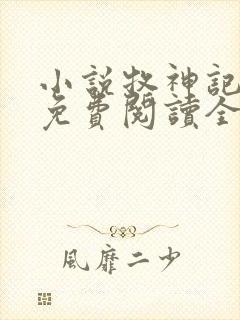 小說牧神記
免費閱讀全
風靡二少